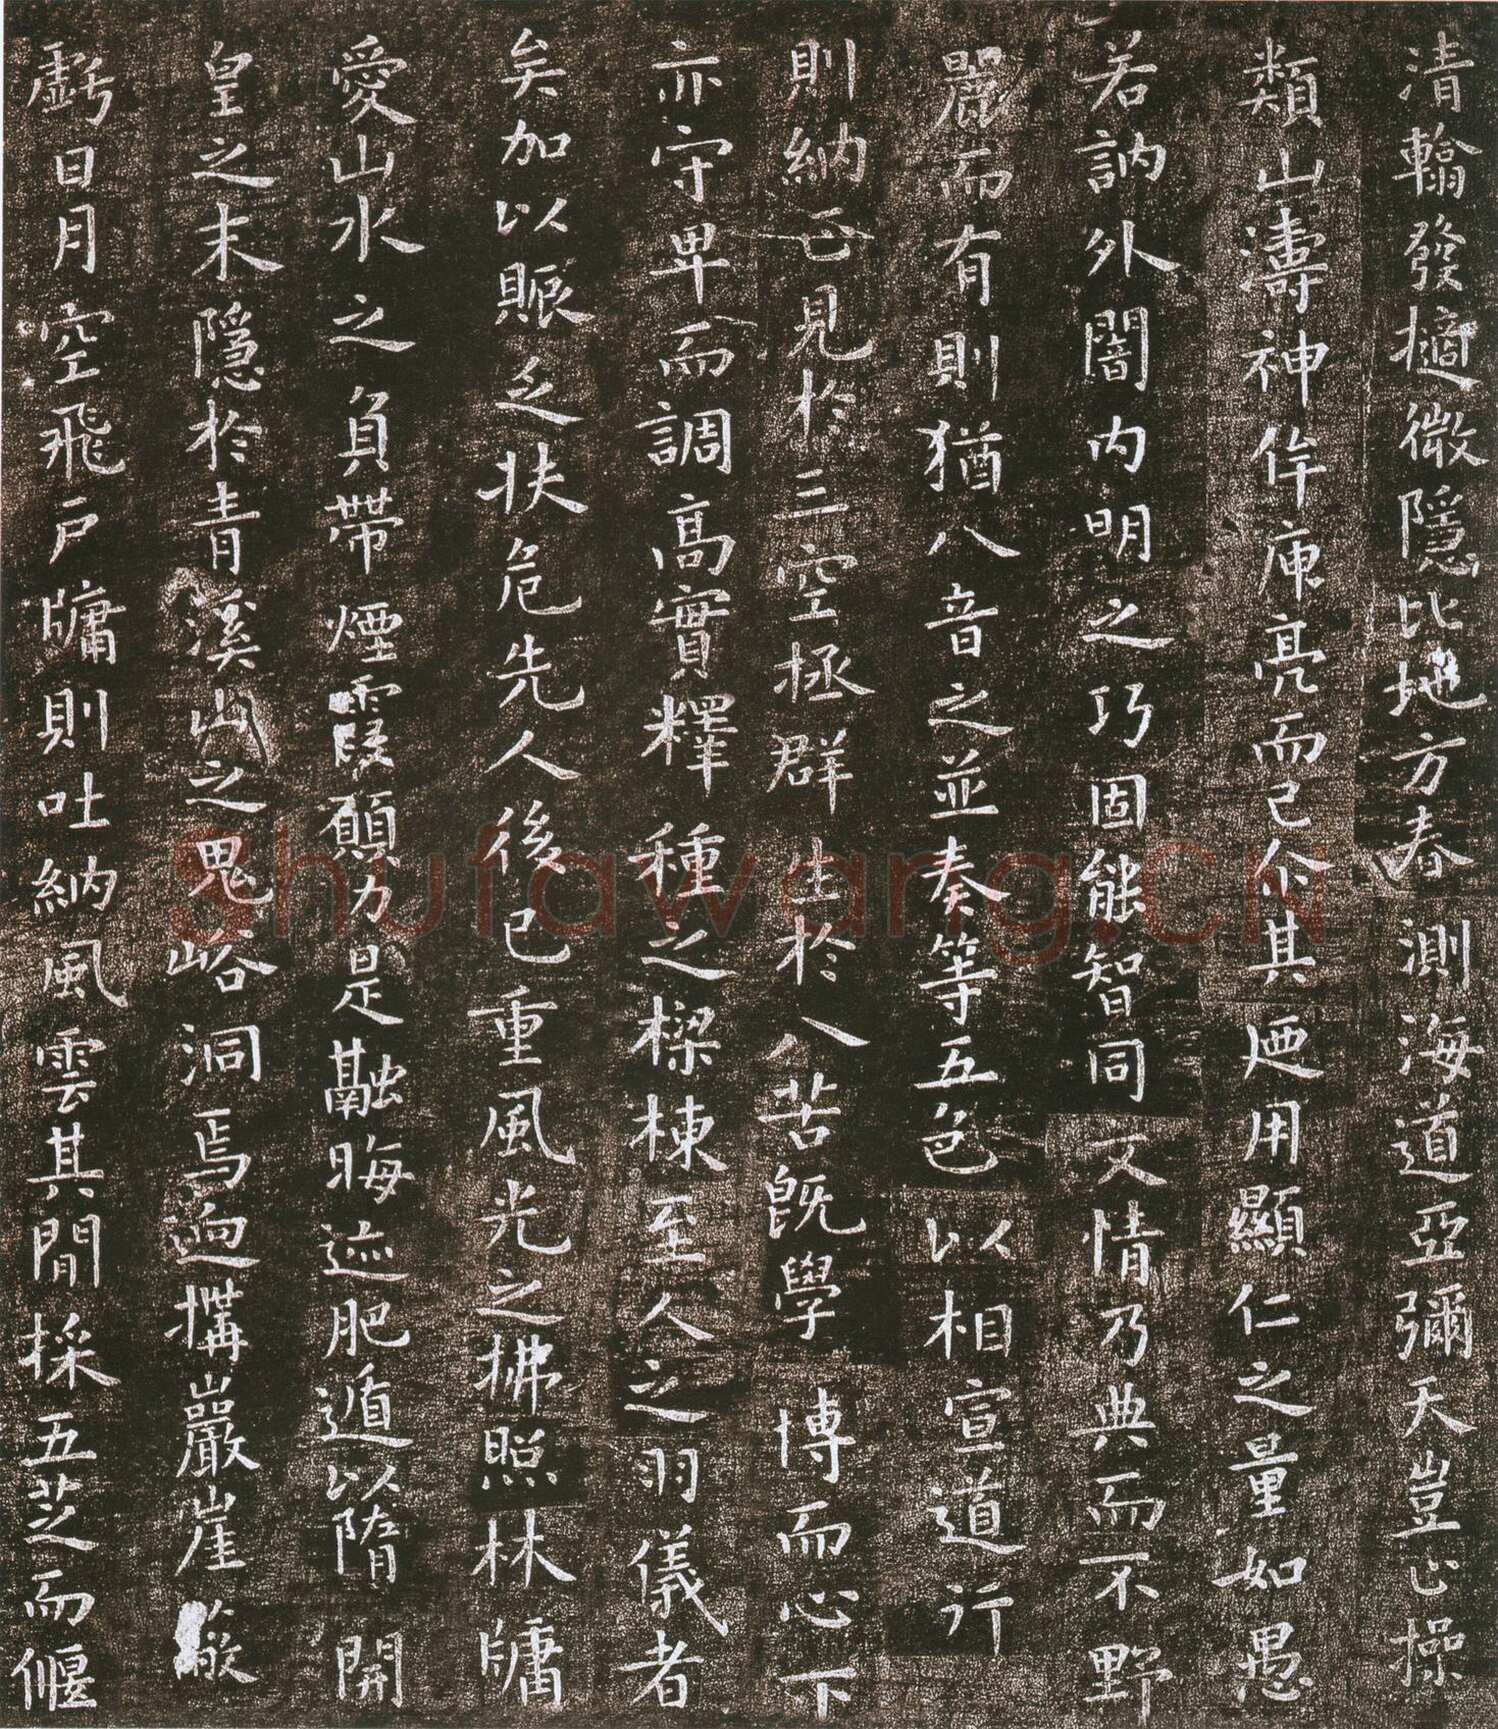 清翰發擿微隱比地方春測海道亞彌天豈止操
類山濤神侔庾亮而已尒其迺用顯仁之量如愚
若訥外闇内明之巧固能智同文情乃典而不野
麗而有則猶八音之並奏等五色以相宣道行
則納正見於三空拯群生於八苦既學博而心下
亦守卑而調高實釋種之樑棟至人之羽儀者
矣加以賑乏扶危先人後已重風光之拂照林牖
愛山水之負帶煙霞願力是融晦迹肥遁以隋開
皇之末隱於青溪山之鬼峪洞焉迥構巖崖蔽
虧日月空飛戶牖則吐納風雲其間採五芝而偃
Shufawang.CN